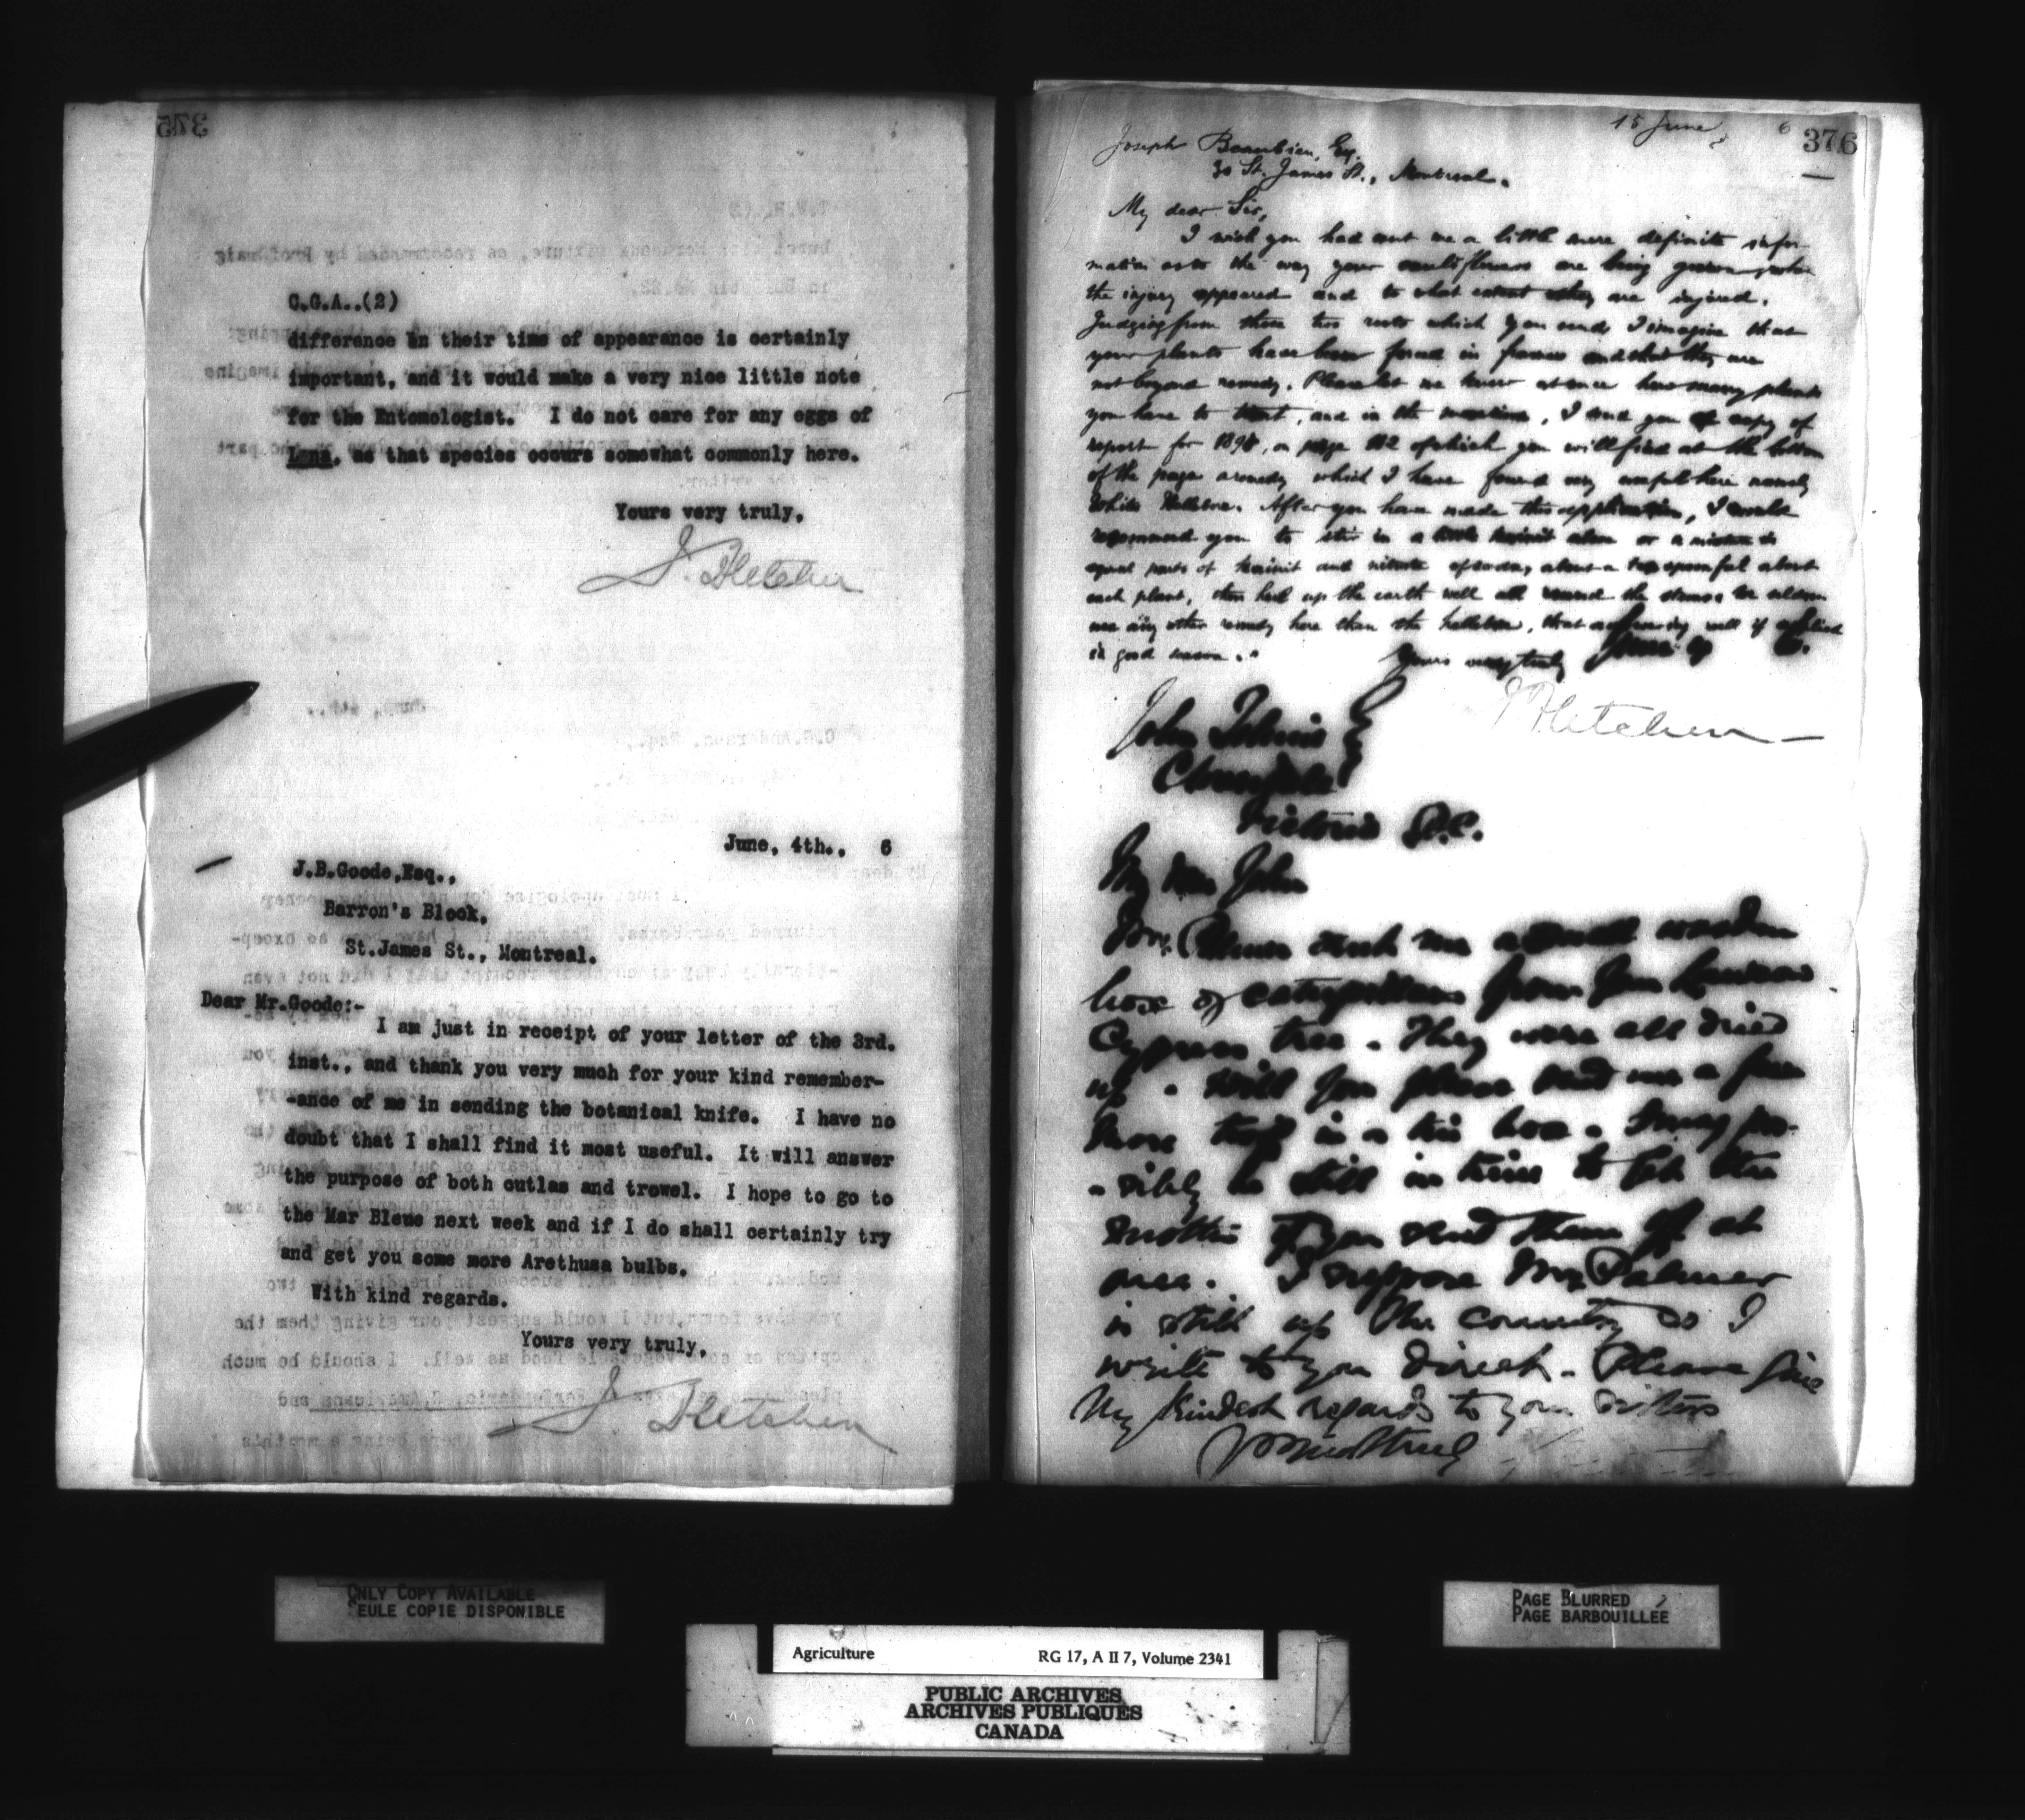 375
C.G.A..(2)
difference in their time of appearance is certainly
important, and it would make a very nice little note
for the Entomologist. I do not care for any eggs of
Lena, as that species occurs somewhat commonly here.
Yours very truly,
J. Fletcher
June, 4th., 6
J.B.Goode,Esq.,
Barron's Block,
St.James St., Montreal.
Dear Mr.Goode:-
I am just in receipt of your letter of the 3rd.
inst., and thank you very much for your kind remember-
-ance of me in sending the botanical knife. I have no
doubt that I shall find it most useful. It will answer
the purpose of both cutlas and trowel. I hope to go to
the Mar Blewe next week and if I do shall certainly try
and get you some more Arethusa bulbs.
With kind regards.
Yours very truly,
J. Fletcher
15 June 6
376
Joseph Beaubien, Esq.
30 St. James St., Montreal.
My dear Sir,
I wish you had sent me a little more definite infor-
mation as to the way your cauliflowers are being grown, when
the injury appeared and to what extent they are injured.
Judging from these two roots which you send I imagine that
your plants have been forced in frames and that they are
not beyond remedy. Please let me know at once how many plants
you have to treat, and in the meantime, I send you a copy of
report for 189, on page 112 of which you will find at the bottom
of the page a remedy which I have found very useful here namely
White Hellebore. After you have made this application, I would
recommend you to stir in a little kainit alone or a mixture in
equal parts of kainit and nitrate of soda, about a teaspoonful about
each plant, then heel up the earth well all round the stems. We seldom
use any other remedy here than the hellebore, that answering well if applied
in good season.
Yours very truly
J Fletcher
June 6.
John
Victoria B.C.
My dear John
Mrs. Palmer sent me a small wooden
box of caterpillars from your Lawson
Cypress tree. They were all dried
up. Will you please send me a few
more in a tin box. I may pos-
-sibly be still in time to get the
moths if you send them off at
once. I suppose Mrs Palmer
is still up the country so I
write to you direct. Please give
My kindest regards to your sisters
ONLY COPY AVAILABLE
SEULE COPIE DISPONIBLE
PAGE BLURRED
PAGE BARBOUILLEE
Agriculture RG 17, A II 7, Volume 2341
PUBLIC ARCHIVES
ARCHIVES PUBLIQUES
CANADA